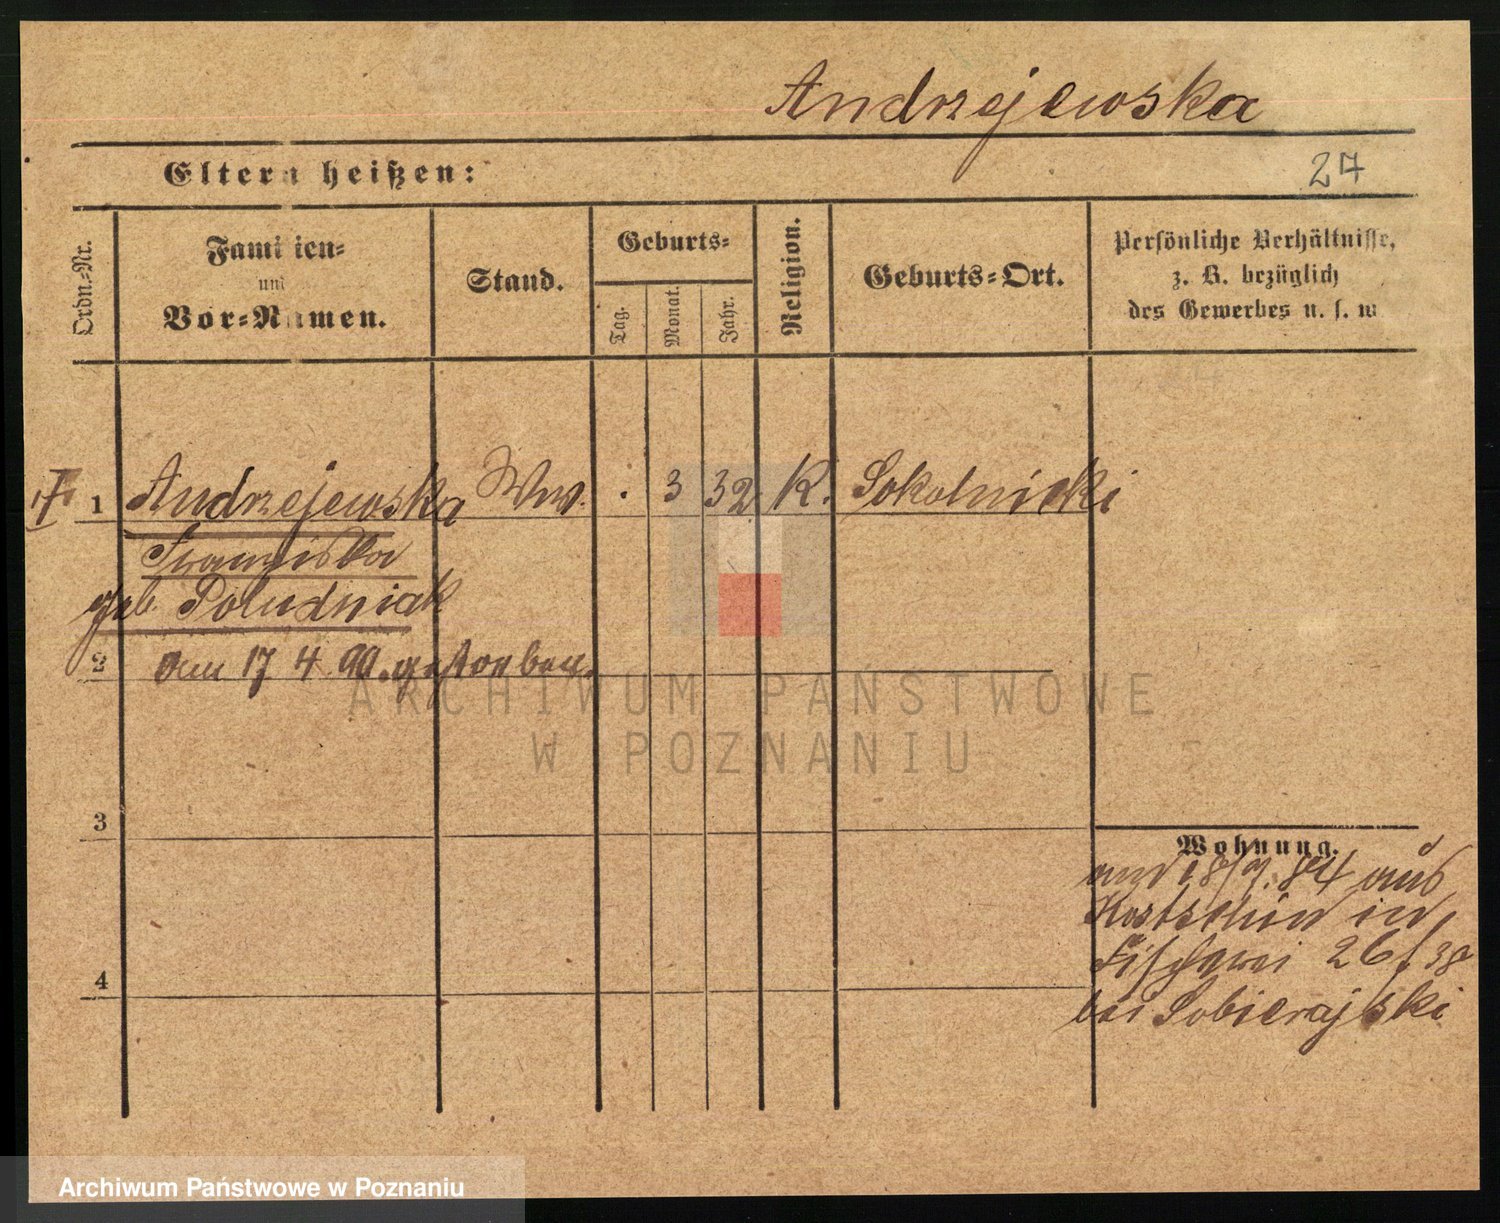 Andrzejewska
Eltern heißen:
27
Ordn.-Nr.
Familien-
und
Vor-Namen.
Stand.
Geburts-
Tag.
Monat.
Jahr.
Religion.
Geburts-Ort.
Persönliche Verhältnisse,
z. B. bezüglich
des Gewerbes u. s. w
1 Andrzejewska Ww. . 3 32 K. Sokolnicki
Franziska
geb. Poludniak
2 am 17 4. 99. gestorben.
ARCHIWUM PAŃSTWOWE
W POZNANIU
3
Wohnung.
18/9. 84 aus
Kostschin in
Fischerei 26/38
bei Sobierajski
4
Archiwum Państwowe w Poznaniu